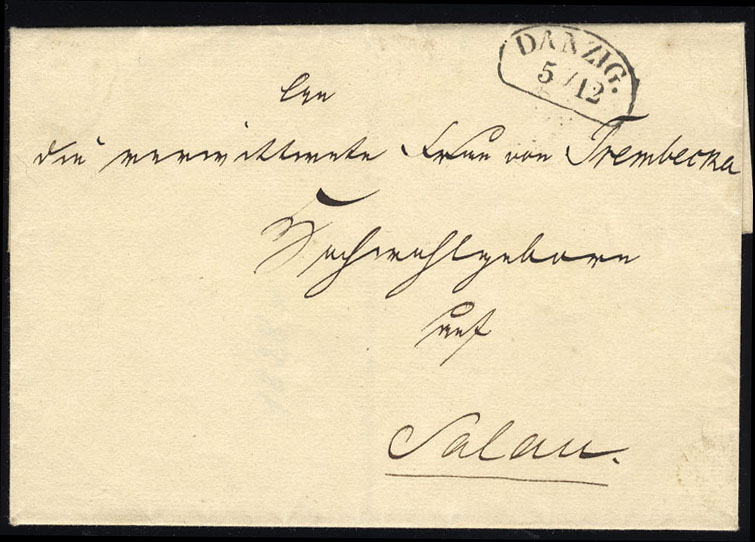 DANZIG.
5 / 12
An
die verwittwete Frau von Trembecka
Hochwohlgeboren
auf
Salau.